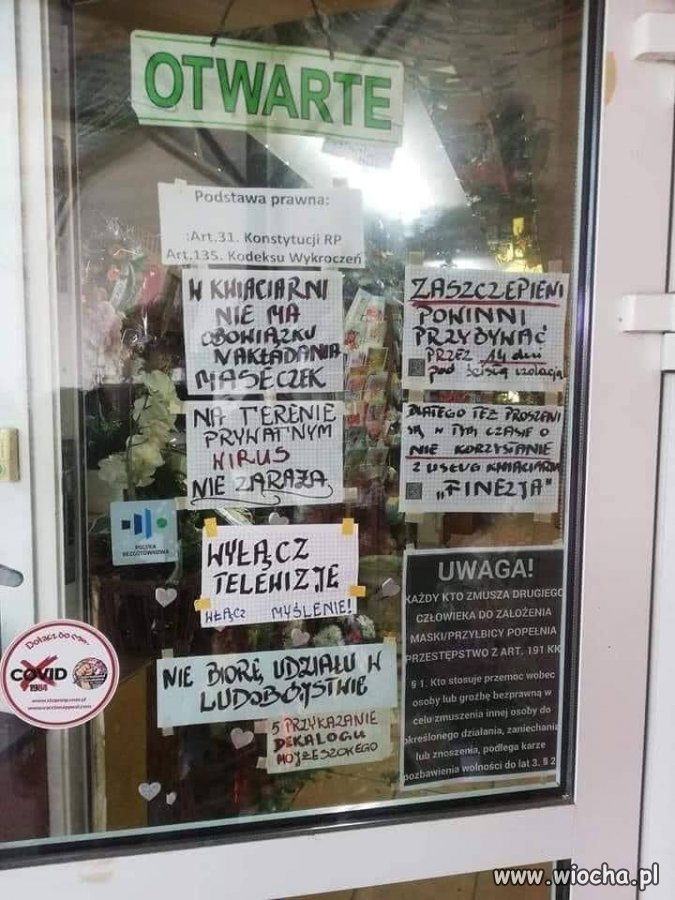 OTWARTE
Podstawa prawna:
:Art.31. Konstytucji RP
Art.135. Kodeksu Wykroczeń
W KWIACIARNI
NIE MA
OBOWIĄZKU
NAKŁADANIA
MASECZEK
NA TERENIE
PRYWATNYM
WIRUS
NIE ZARAŻA
WYŁĄCZ
TELEWIZJĘ
WŁĄCZ MYŚLENIE!
NIE BIORĘ UDZIAŁU W
LUDOBÓJSTWIE
5 PRZYKAZANIE
DEKALOGU
MOJŻESZOKEGO
ZASZCZEPIENI
POWINNI
PRZYBYWAĆ
PRZEZ 14 dni
pod ścisłą izolacją
DLATEGO TEŻ PROSZENI
SĄ W TYM CZASIE O
NIE KORZYSTANIE
Z USŁUG KWIACIARNI
„FINEZJA"
UWAGA!
KAŻDY KTO ZMUSZA DRUGIEGO
CZŁOWIEKA DO ZAŁOŻENIA
MASKI/PRZYŁBICY POPEŁNIA
PRZESTĘPSTWO Z ART. 191 KK
§ 1. Kto stosuje przemoc wobec
osoby lub groźbę bezprawną w
celu zmuszenia innej osoby do
określonego działania, zaniechania
lub znoszenia, podlega karze
pozbawienia wolności do lat 3. § 2
POLSKA
BEZGOTÓWKOWA
Dołącz do
COVID
1984
www.wiocha.pl